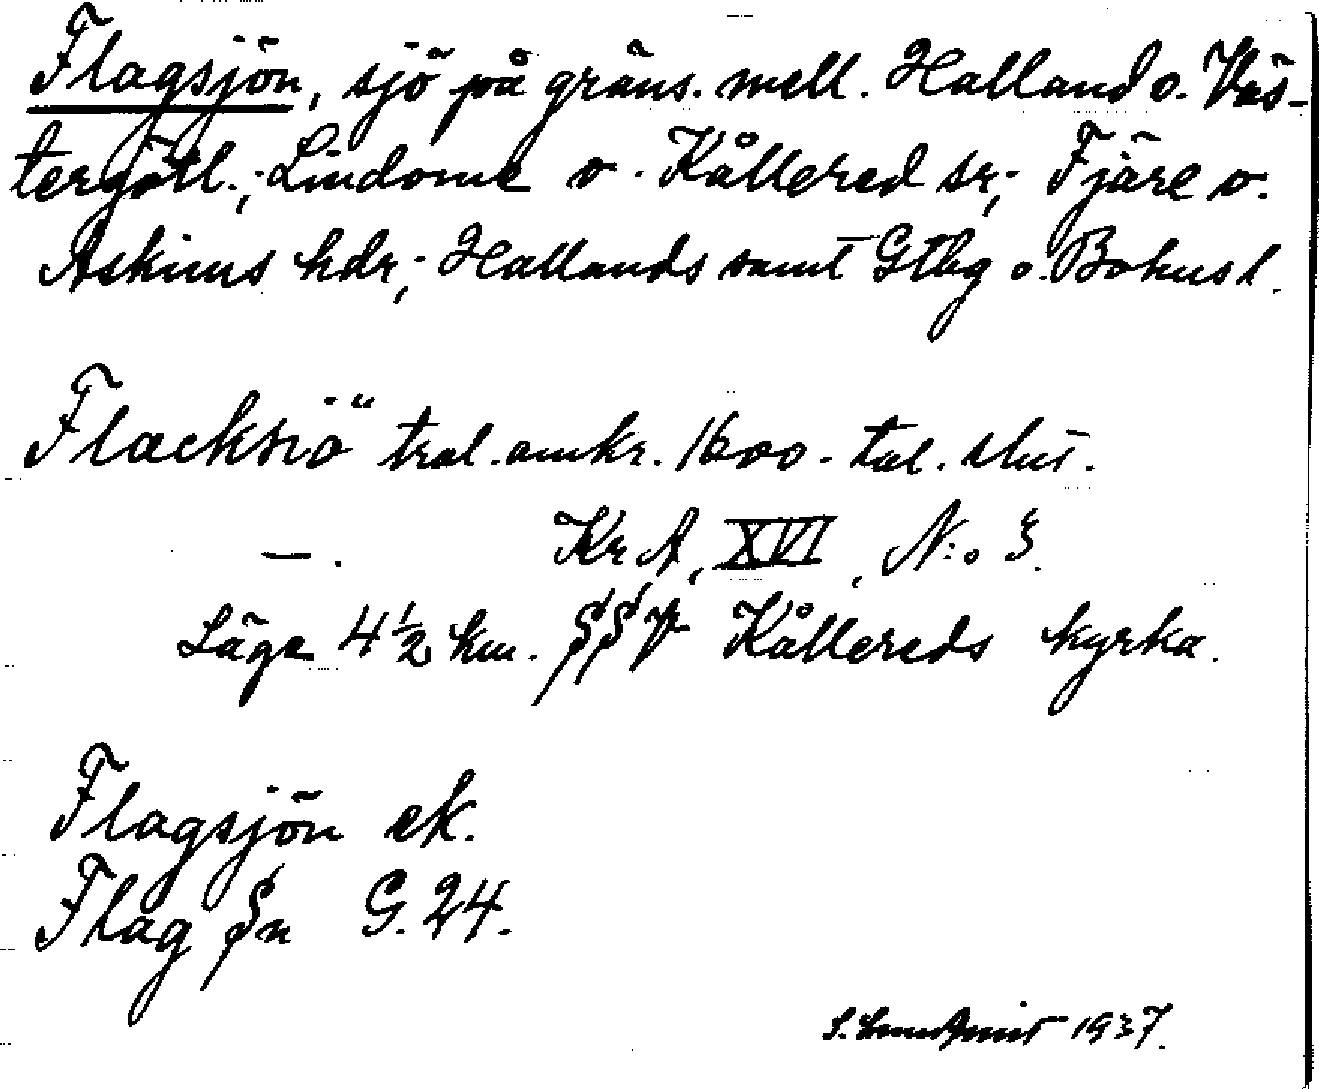 Flagsjön, sjö på gräns. mell. Halland o. Väs-
tergötl.; Lindome o. Kållered sr; Fjäre o.
Askims hdr; Hallands samt Gtbg o. Bohus l.
Flacksiö tral. omkr. 1600-tal. slut.
—. Kr A, XVI, N:o 3.
Läge 4 1/2 km. V Kållereds kyrka.
Flagsjön ek.
Flag n G. 24.
1937.